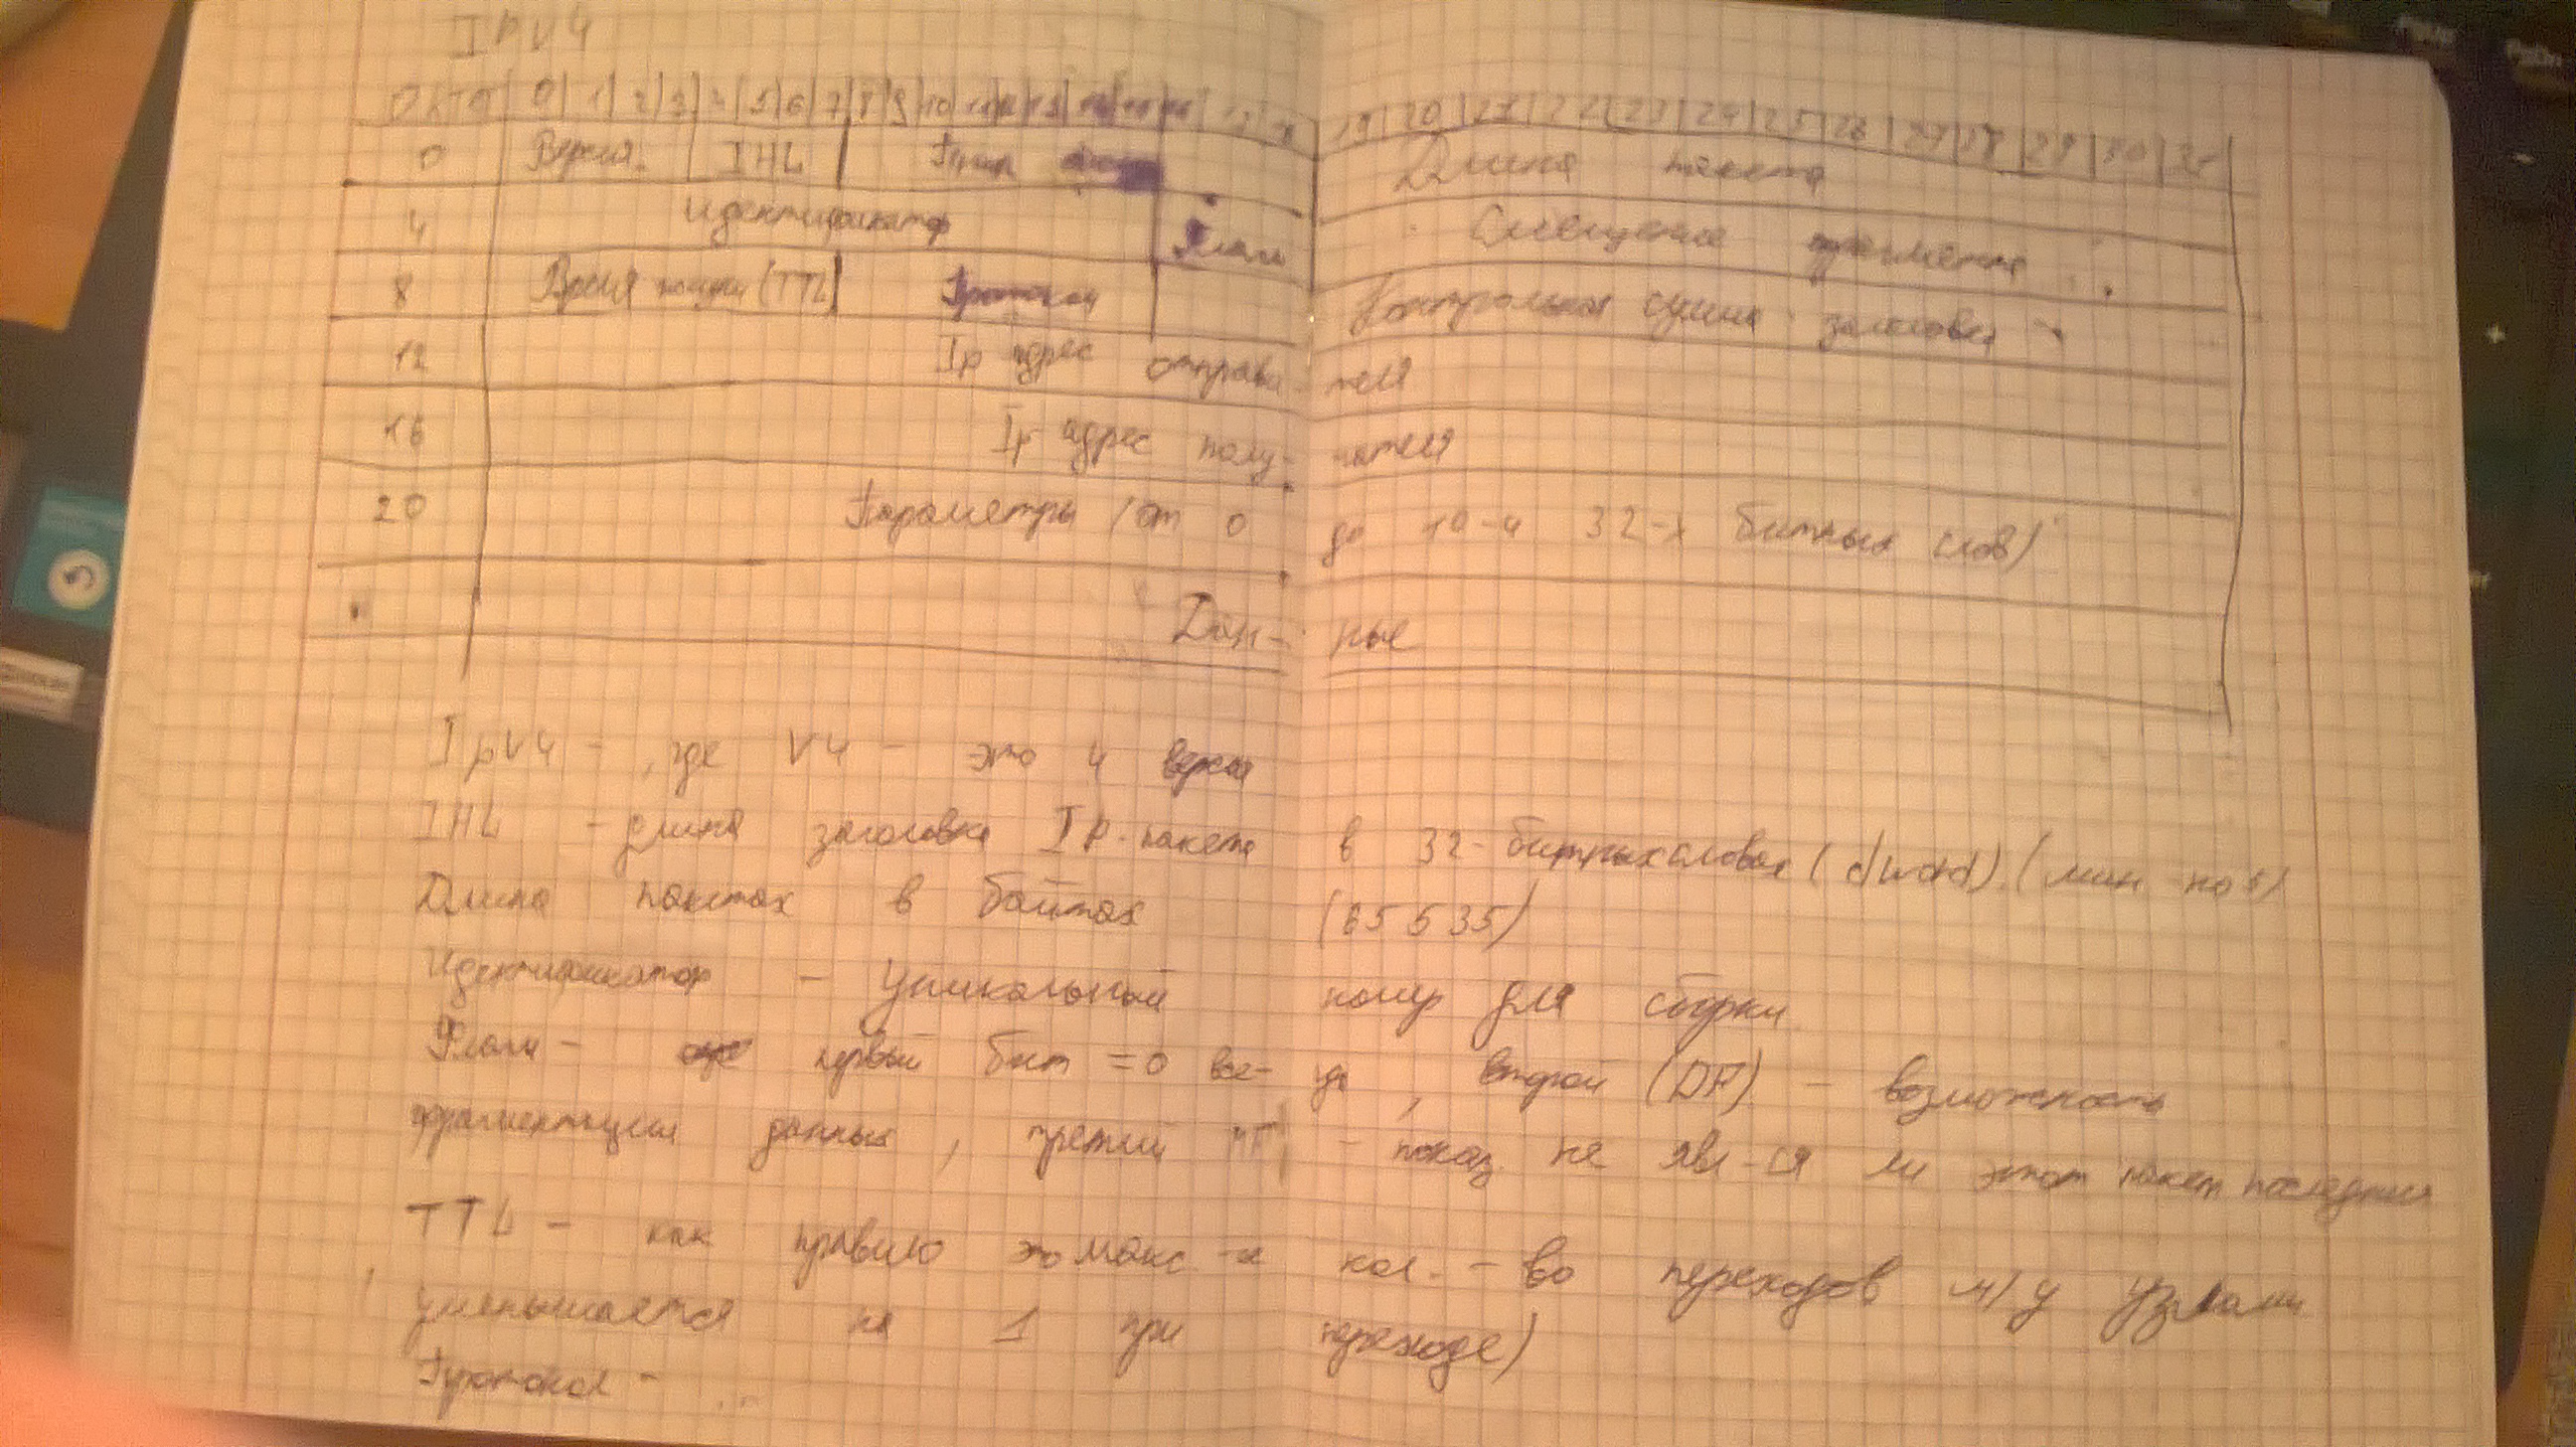 IPV4
Октет 0 1 2 3 4 5 6 7 8 9 10 11 12 13 14 15 16 17 18 19 20 21 22 23 24 25 26 27 28 29 30 31
0 Версия IHL Тип Длина пакета
4 Идентификатор Флаги Смещение фрагмента
8 Время жизни (TTL) Протокол Контрольная сумма заголовка
12 Ip адрес отправи- теля
16 Ip адрес полу- чателя
20 Параметры (от 0 до 10-и 32-х битных слов)
Дан- ные
IpV4 - , где V4 - это 4 версия
IHL - длина заголовка IP-пакета в 32-битных словах (dword). (мин
Длина пакетах в байтах (65535)
Идентификатор - Уникальный номер для сборки
Флаги - первый бит = 0 все- гда, второй (DF) - возможность
фрагментации данных, третий MF) - показ. не явл-ся ли этот пакет последним
TTL - как правило это макс-е кол.-во переходов м/у узлами
уменьшается на 1 при переходе)
Протокол - ...